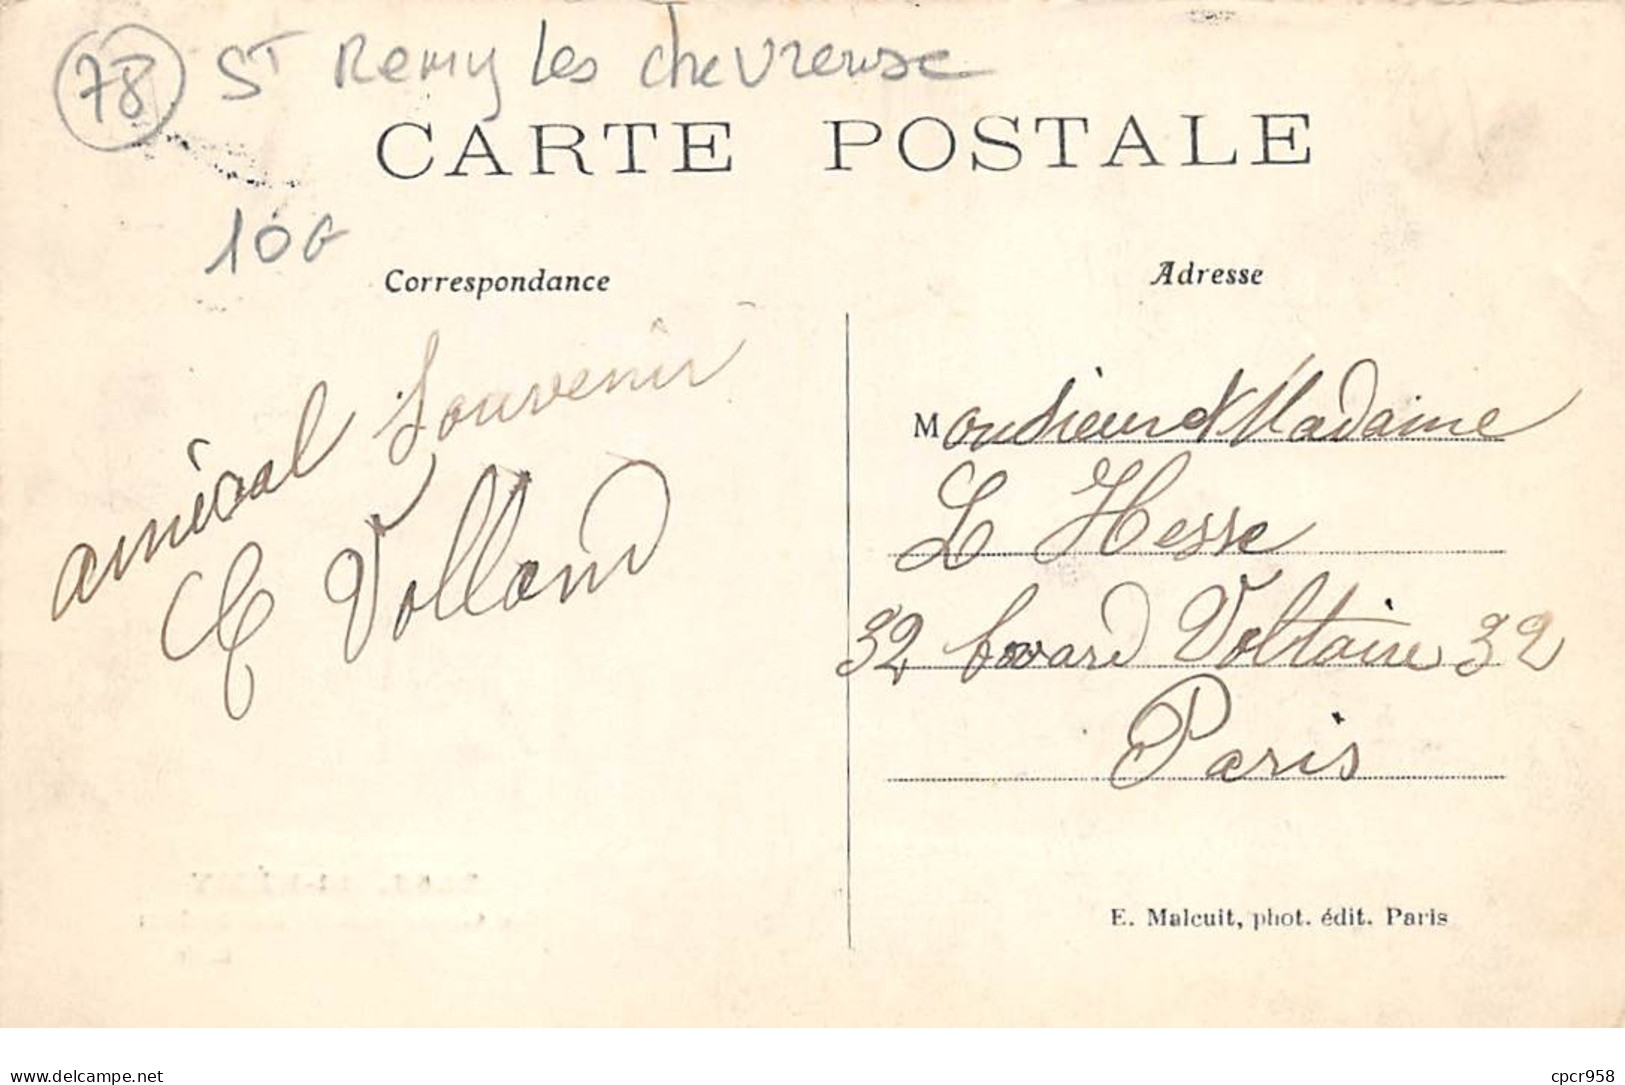 78 St Remy les chevreuse
CARTE POSTALE
10G
Correspondance
amical Souvenir
E Volland
Adresse
Monsieur et Madame
L Hesse
32 bovard Voltaire 32
Paris
E. Malcuit, phot. édit. Paris
www.delcampe.net
cpcr958